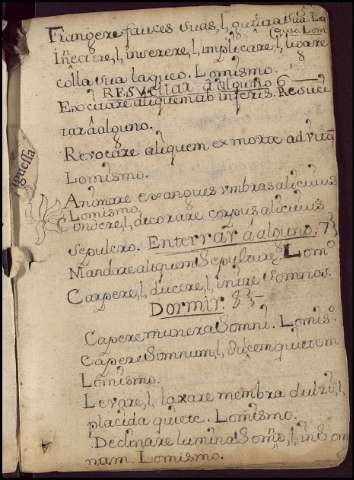 Frangere fauces suas, l, guttura sua. Lo
Inecare, l, inserere, l, implicare, l, ligare
colla sua laqueo. Lomismo.
RESUCITAR á alguno 6
Excitare aliquem ab inferis. Resuci
tar á alguno.
Revocare aliquem ex morte ad vitā
Lomismo.
Animare exangues umbras alicuius
Lomismo.
Condere, l, decorare corpus alicuius
sepulcro. Enterrar á alguno. 7
Mandare aliquem sepulturę. Lomo
Carpere, l, ducere, l, inire somnos.
Dormir. 8
Capere munera somni. Lomiso.
Capere somnum, l, dulcem quietem
Lomismo.
Levare, l, laxare membra dulci, l,
placida quiete. Lomismo.
Declinare lumina somno, l, in som
nam. Lomismo.